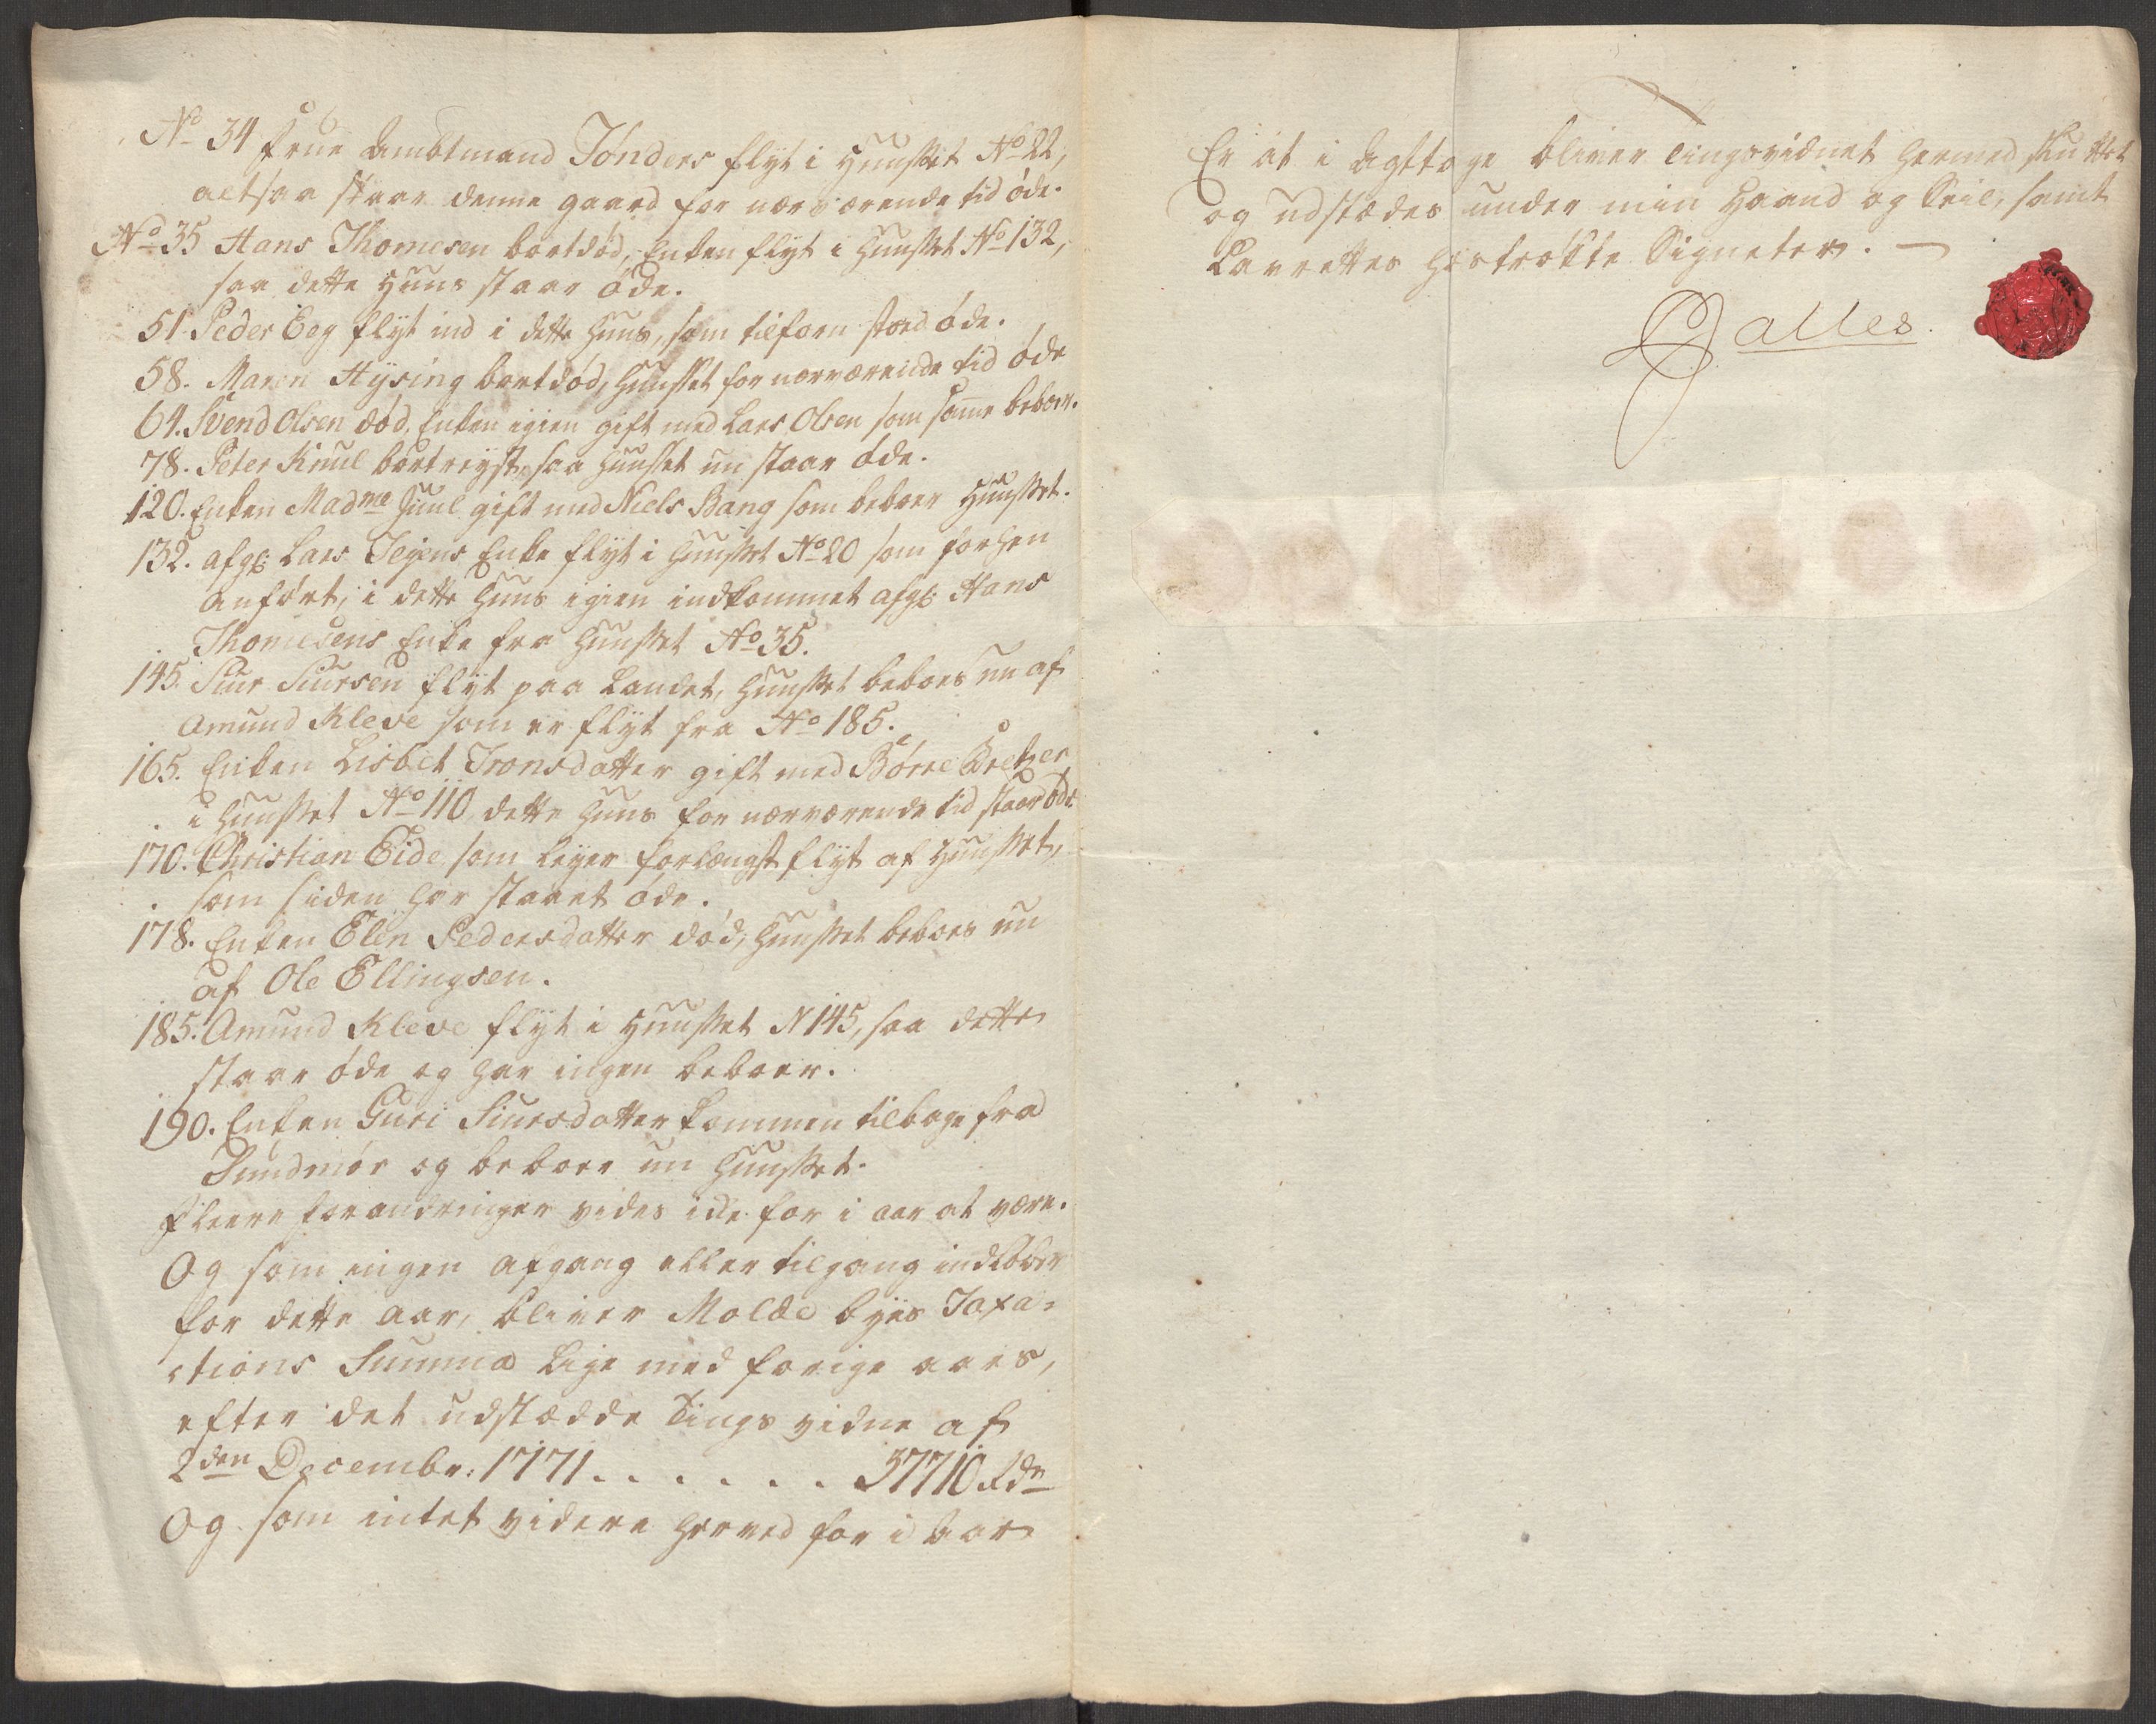 No 34 Frue Ambtmand Tønders flyt i Huuset No 22,
altsaa staar denne gaard for nærværende tid øde.
No 35 Hans Thomesen bortdød, Enken flyt i Huuset No 132,
saa dette Huus staar øde.
51 Peder Eeg flyt ind i dette Huus, som tilforn stoed øde.
58. Maren Hysing bortdød, Huuset for nærværende tid øde
64. Svend Olsen død, Enken igien gift med Lars Olsen som samme beboer.
78. Peter Knul bortreyst, saa Huuset nu staar øde.
120. Enken Madme Juul gift med Niels Bang som beboer Huuset.
132. afg: Lars Tejens Enke flyt i Huuset No 20 som forhen
anført, i dette Huus igien indkommet afg: Hans
Thomesens Enke fra Huuset No 35.
145. Siur Siursen flyt paa Landet, Huuset beboes nu af
Amund Kleve som er flyt fra No 185.
165. Enken Lisbet Tronsdatter gift med Børre
i Huuset No 110, dette Huus for nærværende tid staar øde.
170. Christian Eide som leyer forlængst flyt af Huuset,
som siden har staaet øde.
178. Enken Elen Pedersdatter død, Huuset beboes nu
af Ole Ellingsen.
185. Amund Kleve flyt i Huuset N 145, saa dette
staar øde og har ingen beboer.
190. Enken Guri Siursdatter kommen tilbage fra
Sundmør og beboer nu Huuset.
Fleere forandringer vides icke for i aar at være.
Og som ingen afgang eller tilgang indløber
for dette aar, bliver Molde byes Taxa-
ctions Summa lige med forige aars,
efter det udstædde Tings vidne af
2den Decembr: 1771. . . . . . . 37710 Rdr
Og som intet videre herved for i Aar
Er at i Agttage bliver Tingsvidnet hermed sluttet
og udstædes under min Haand og Seil, samt
Laurettes hostrøkte Signeter. —
Dalles.